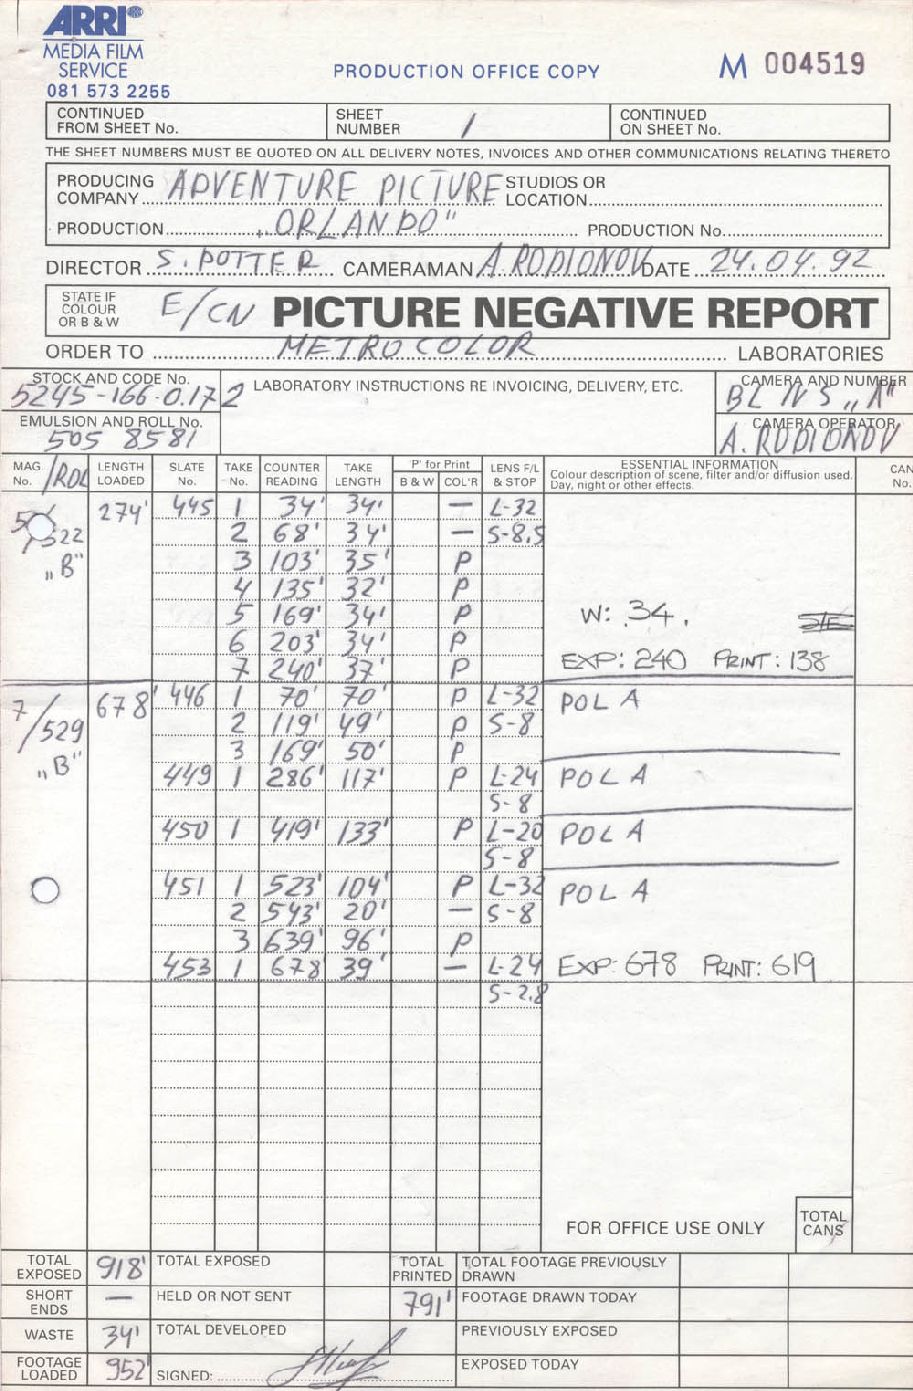 ARRI
MEDIA FILM
SERVICE
081 573 2255
PRODUCTION OFFICE COPY
M 004519
CONTINUED FROM SHEET No.
SHEET NUMBER 1
CONTINUED ON SHEET No.
THE SHEET NUMBERS MUST BE QUOTED ON ALL DELIVERY NOTES, INVOICES AND OTHER COMMUNICATIONS RELATING THERETO
PRODUCING COMPANY ADVENTURE PICTURE STUDIOS OR LOCATION
PRODUCTION „ORLANDO" PRODUCTION No.
DIRECTOR S. POTTER CAMERAMAN A. RODIONOV DATE 24.04.92
STATE IF COLOUR OR B & W E/CN PICTURE NEGATIVE REPORT
ORDER TO METROCOLOR LABORATORIES
STOCK AND CODE No. 5245-166-0.172
LABORATORY INSTRUCTIONS RE INVOICING, DELIVERY, ETC.
CAMERA AND NUMBER BL IVS „A"
EMULSION AND ROLL No. 505 8581
CAMERA OPERATOR A. RODIONOV
MAG. No. /ROL LENGTH LOADED SLATE No. TAKE No. COUNTER READING TAKE LENGTH P' for Print B & W COL'R LENS F/L & STOP ESSENTIAL INFORMATION Colour description of scene, filter and/or diffusion used. Day, night or other effects. CAN No.
274' 445 1 34' 34' — L-32
/522 2 68' 34' — S-8,5
„B" 3 103' 35' P
4 135' 32' P
5 169' 34' P W: 34.
6 203' 34' P
7 240' 37' P EXP: 240 PRINT: 138
7/529 678' 446 1 70' 70' P L-32 POL A
2 119' 49' P S-8
„B" 3 169' 50' P
449 1 286' 117' P L-24 POL A
S-8
450 1 419' 133' P L-20 POL A
S-8
451 1 523' 104' P L-32 POL A
2 543' 20' — S-8
3 639' 96' P
453 1 678' 39' — L-24 EXP: 678 PRINT: 619
S-2.8
FOR OFFICE USE ONLY TOTAL CANS
TOTAL EXPOSED 918' TOTAL EXPOSED TOTAL PRINTED TOTAL FOOTAGE PREVIOUSLY DRAWN
SHORT ENDS — HELD OR NOT SENT 791' FOOTAGE DRAWN TODAY
WASTE 34' TOTAL DEVELOPED PREVIOUSLY EXPOSED
FOOTAGE LOADED 952' SIGNED: EXPOSED TODAY